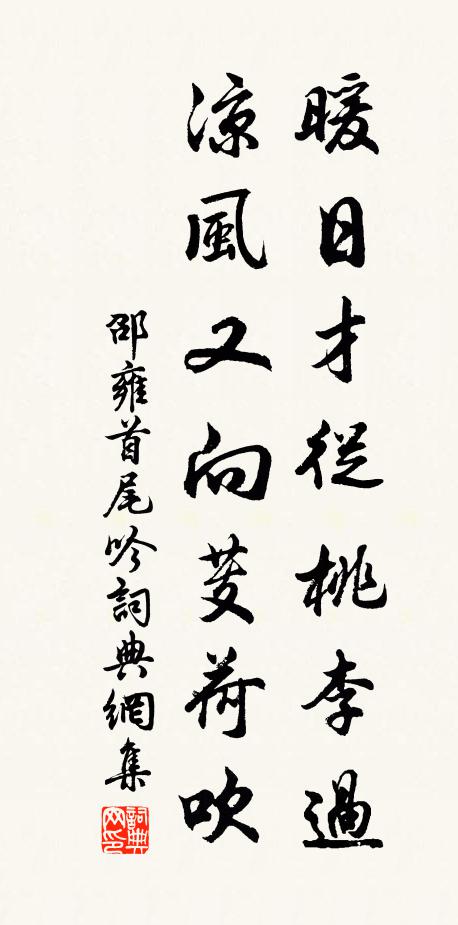 暖日才從桃李過
涼風又向芰荷吹
邵雍首尾吟詞典網集
詞典网印